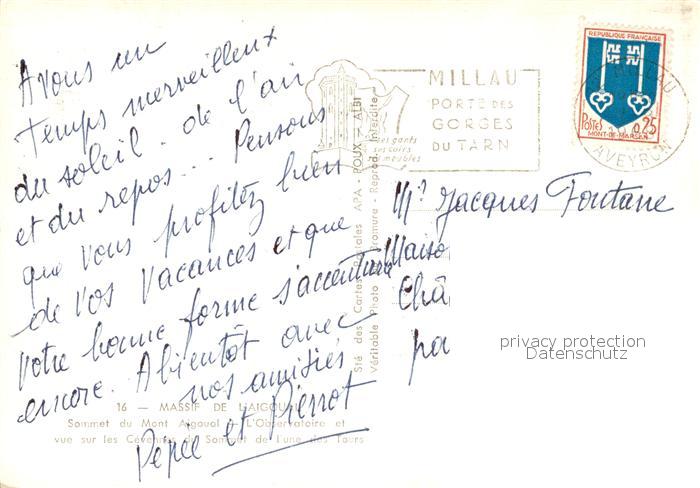 Avons un
temps merveilleux
du soleil. de l'air
et du repos... Pensons
que vous profitez bien
de vos vacances et que
votre bonne forme s'accentuera
encore. A bientôt avec
nos amitiés
Pépée et Pierrot
16 — MASSIF DE L'AIGOUAL
Sommet du Mont Aigoual — L'Observatoire et
vue sur les Cévennes du Sommet de l'une des Tours
Sté des Cartes Postales APA - POUX - ALBI
Véritable Photo Bromure - Reprod. Interdite
ses gants
ses cuirs
meubles
MILLAU
PORTE DES
GORGES
DU TARN
REPUBLIQUE FRANÇAISE
POSTES
0,25
MONT-DE-MARSAN
MILLAU
AVEYRON
Mr Jacques Fontane
Maiso
Châ
par
privacy protection
Datenschutz